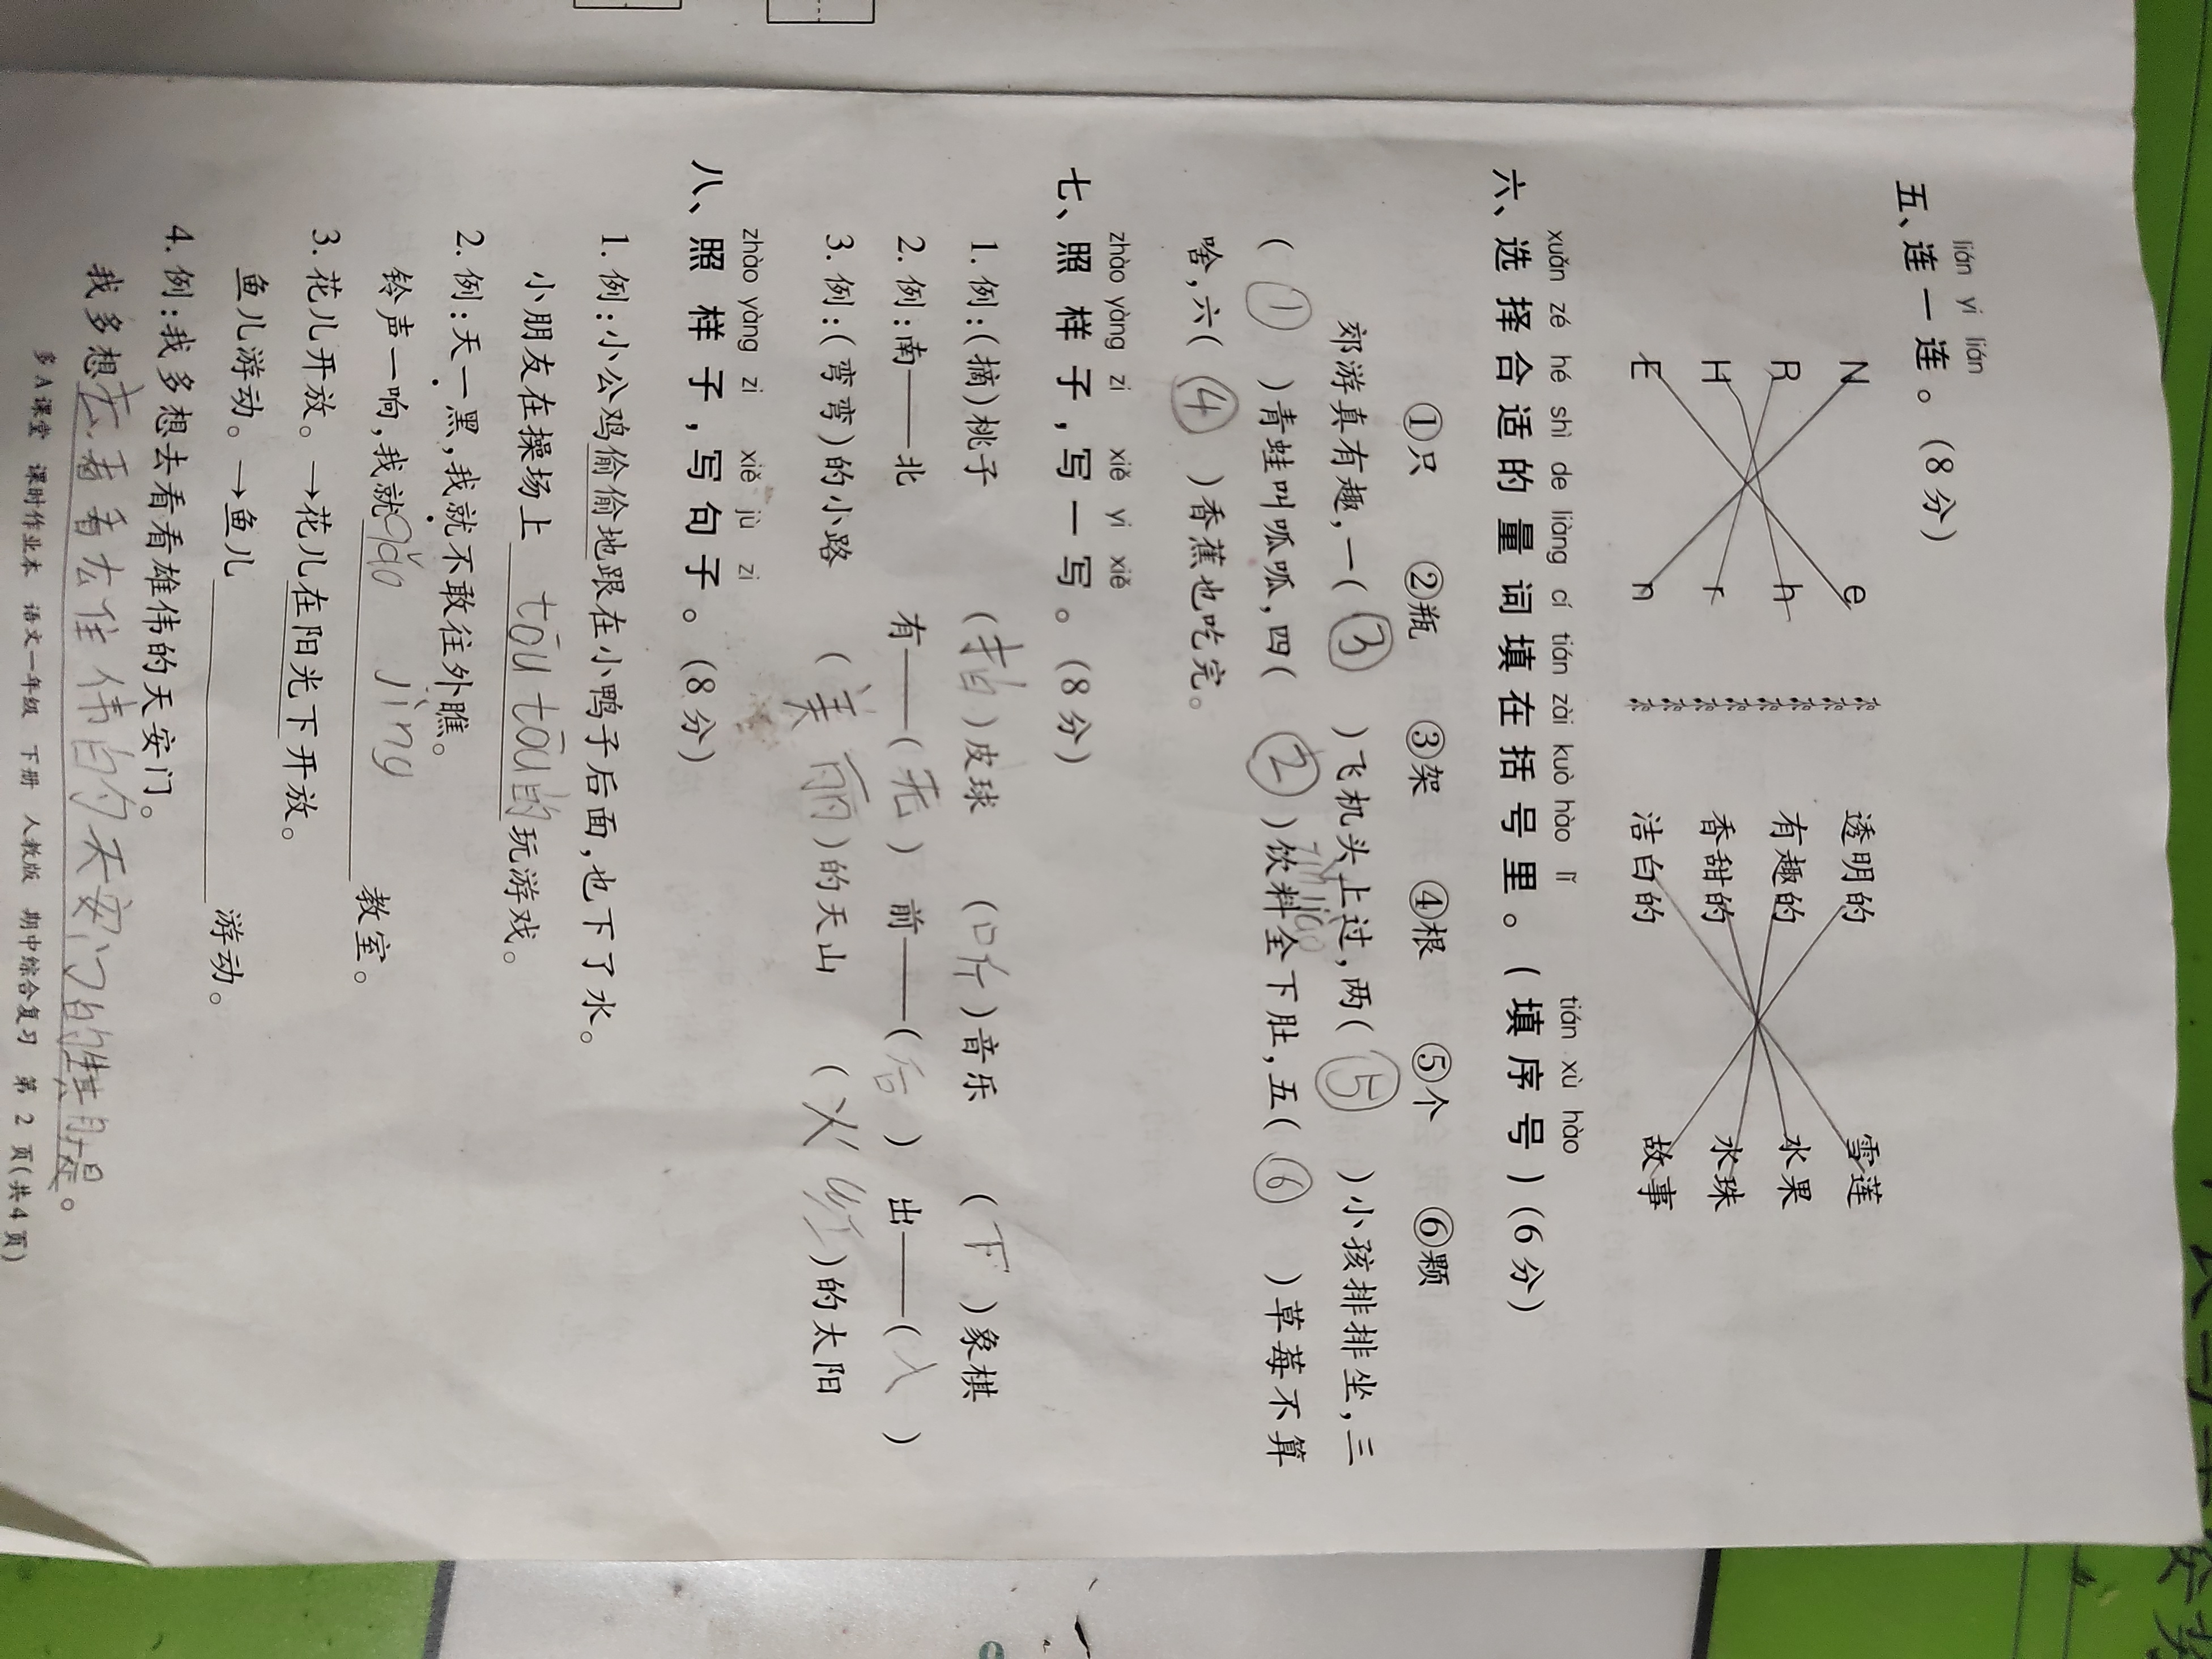 lián yi lián
五、连一连。(8分)
N R H E
e h r n
透明的 有趣的 香甜的 洁白的
雪莲 水果 水珠 故事
xuǎn zé hé shì de liàng cí tián zài kuò hào lǐ tián xù hào
六、选择合适的量词填在括号里。(填序号)(6分)
①只 ②瓶 ③架 ④根 ⑤个 ⑥颗
郊游真有趣,一(③)飞机头上过,两(⑤)小孩排排坐,三
(①)青蛙叫呱呱,四(②)饮料全下肚,五(⑥)草莓不算
啥,六(④)香蕉也吃完。
zhào yàng zi xiě yi xiě
七、照样子,写一写。(8分)
1. 例:(摘)桃子 (拍)皮球 (口斤)音乐 (下)象棋
2. 例:南——北 有——(无) 前——(后) 出——(入)
3. 例:(弯弯)的小路 (美丽)的天山 (火红)的太阳
zhào yàng zi xiě jù zi
八、照样子,写句子。(8分)
1. 例:小公鸡偷偷地跟在小鸭子后面,也下了水。
小朋友在操场上 tōu tōu的 玩游戏。
2. 例:天一黑,我就不敢往外瞧。
铃声一响,我就 jìng 教室。
3. 花儿开放。→花儿在阳光下开放。
鱼儿游动。→鱼儿 游动。
4. 例:我多想去看看雄伟的天安门。
我多想去看看 伟的天安门的。
多A课堂 课时作业本 语文一年级 下册 人教版 期中综合复习 第 2 页(共4页)